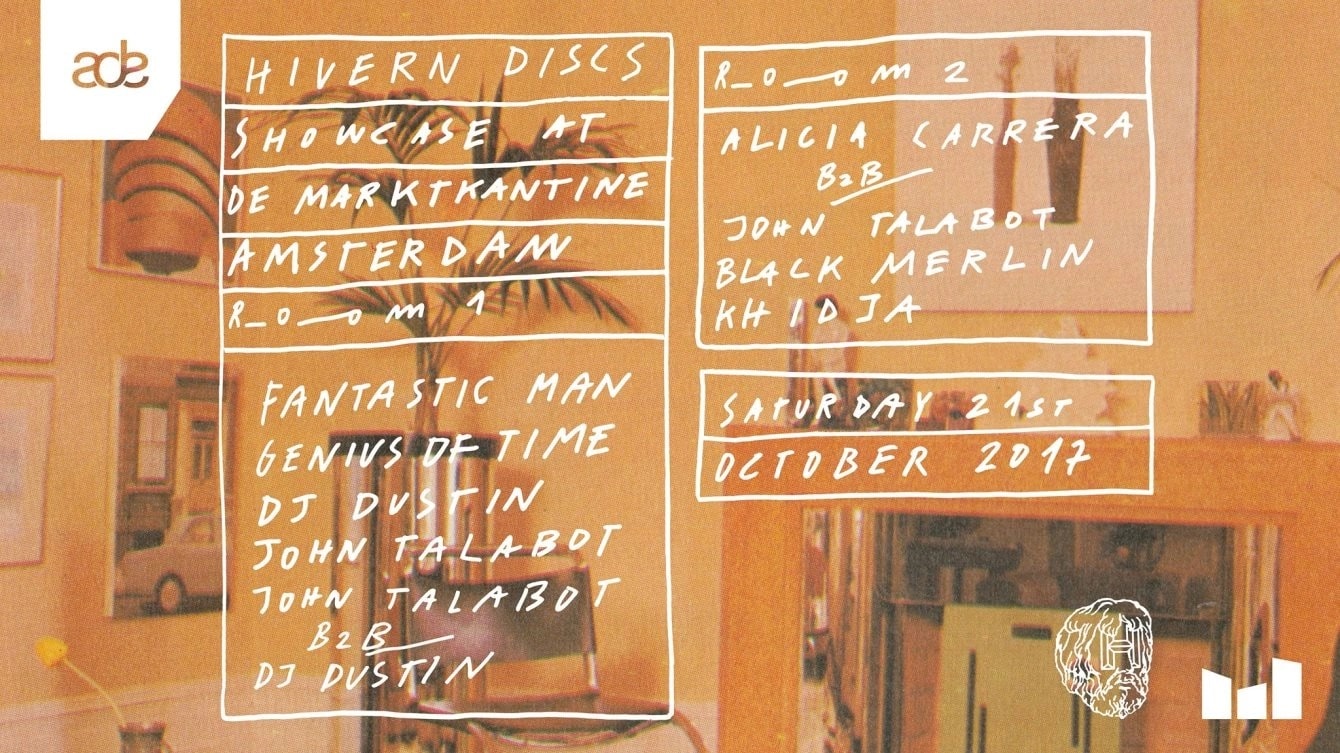 ade
HIVERN DISCS
SHOWCASE AT
DE MARKTKANTINE
AMSTERDAM
R_O_O M 1
FANTASTIC MAN
GENIUS OF TIME
DJ DUSTIN
JOHN TALABOT
JOHN TALABOT
B2B
DJ DUSTIN
R_O_O M 2
ALICIA CARRERA
B2B
JOHN TALABOT
BLACK MERLIN
KHIDJA
SATURDAY 21ST
OCTOBER 2017
H